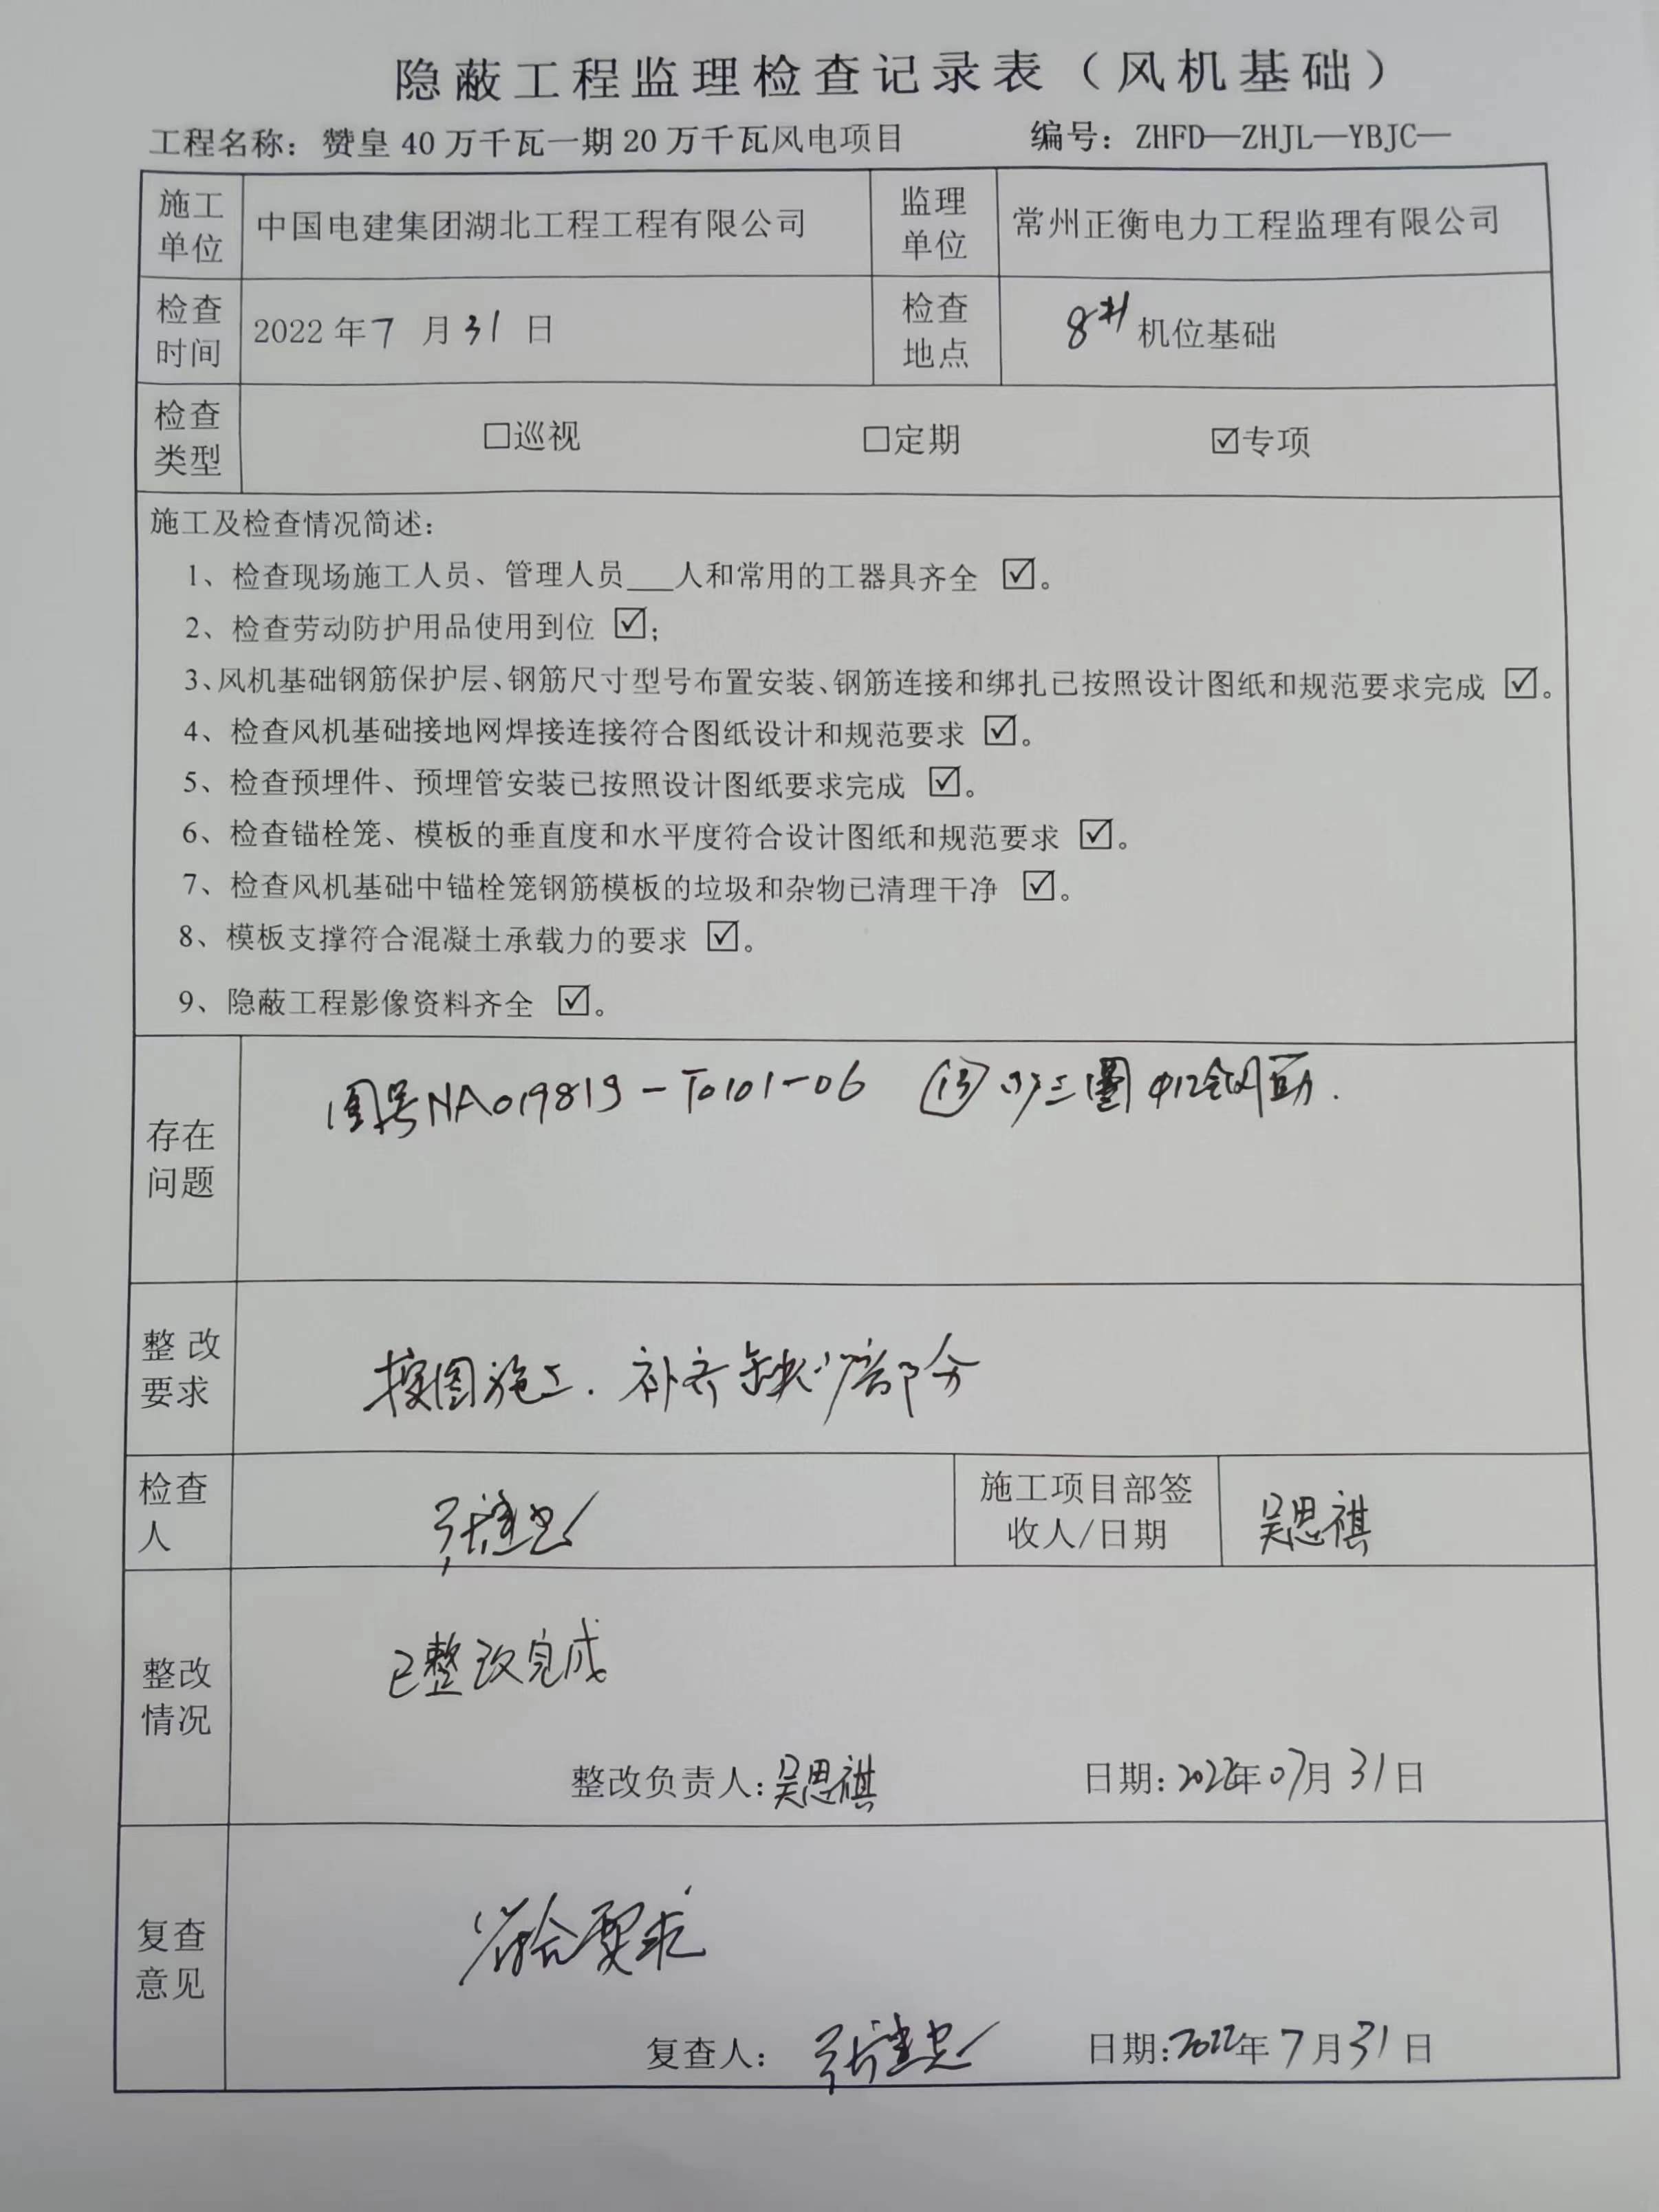 隐蔽工程监理检查记录表（风机基础）
工程名称：赞皇 40 万千瓦一期 20 万千瓦风电项目 编号：ZHFD—ZHJL—YBJC—
施工单位 中国电建集团湖北工程工程有限公司 监理单位 常州正衡电力工程监理有限公司
检查时间 2022 年 7 月 31 日 检查地点 8# 机位基础
检查类型 □巡视 □定期 ☑专项
施工及检查情况简述：
1、检查现场施工人员、管理人员___人和常用的工器具齐全 ☑。
2、检查劳动防护用品使用到位 ☑；
3、风机基础钢筋保护层、钢筋尺寸型号布置安装、钢筋连接和绑扎已按照设计图纸和规范要求完成 ☑。
4、检查风机基础接地网焊接连接符合图纸设计和规范要求 ☑。
5、检查预埋件、预埋管安装已按照设计图纸要求完成 ☑。
6、检查锚栓笼、模板的垂直度和水平度符合设计图纸和规范要求 ☑。
7、检查风机基础中锚栓笼钢筋模板的垃圾和杂物已清理干净 ☑。
8、模板支撑符合混凝土承载力的要求 ☑。
9、隐蔽工程影像资料齐全 ☑。
存在问题 图号NA019819-T0101-06 ⑬少三圈φ12钢筋.
整改要求 按图施工.补齐缺少部分
检查人 施工项目部签收人/日期 吴思祺
整改情况 已整改完成
整改负责人：吴思祺 日期：2022年07月31日
复查意见 符合要求
复查人： 日期：2022年7月31日